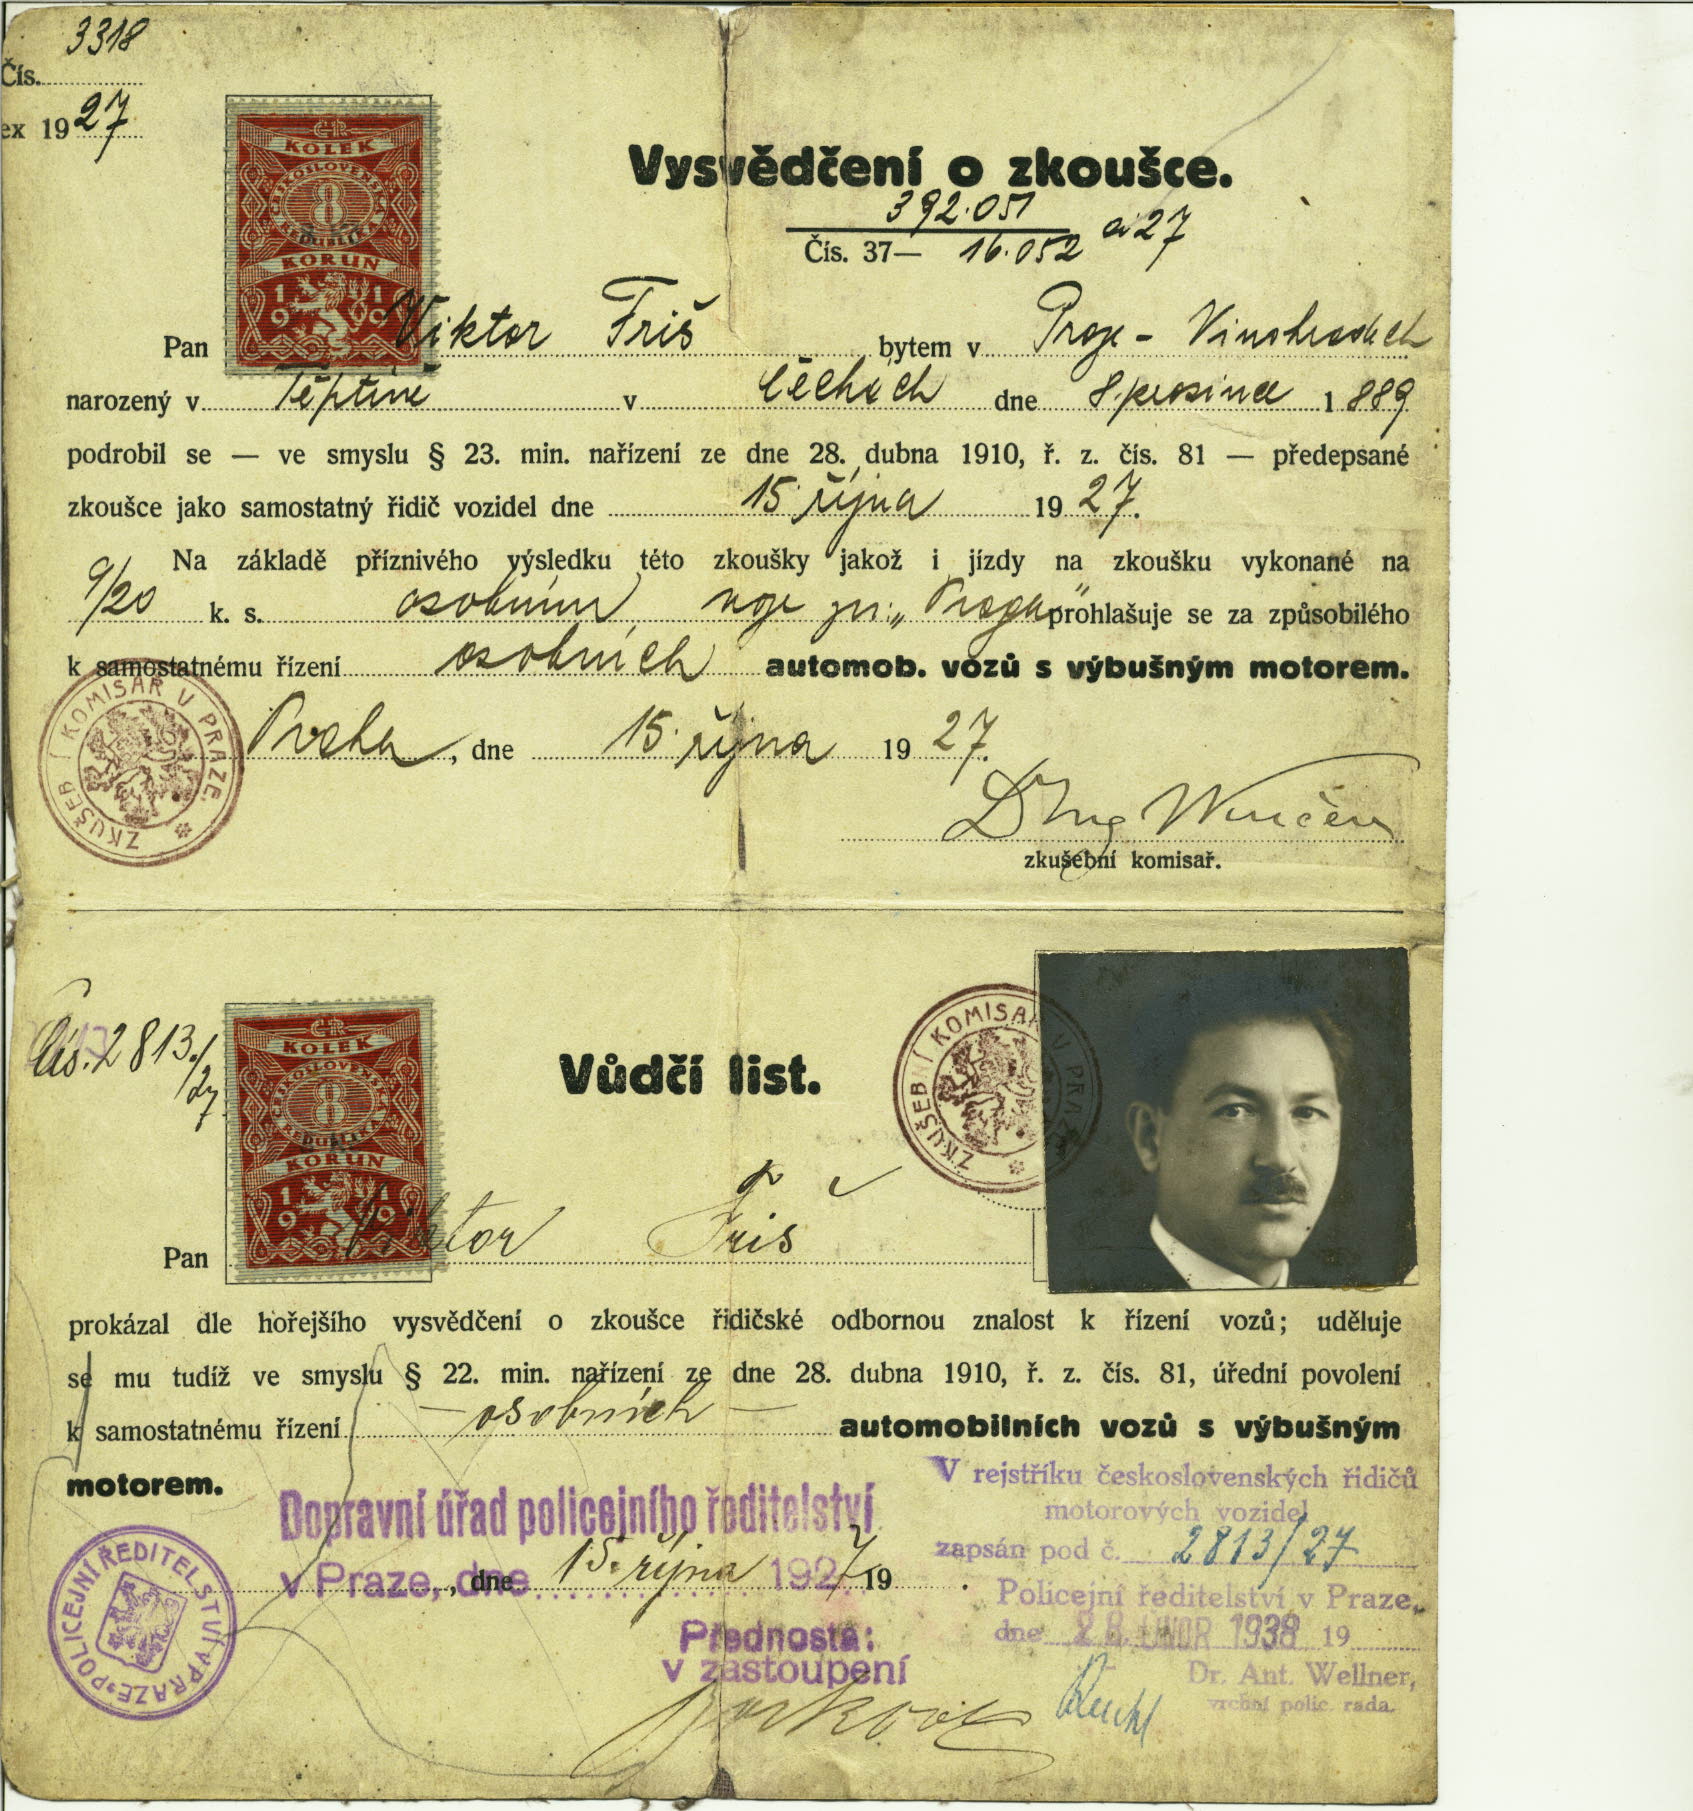 3318
Čís.
ex 1927
ČR
KOLEK
ČESKOSLOVENSKÁ
8
REPUBLIKA
KORUN
1919
Vysvědčení o zkoušce.
392.051
Čís. 37— 16.052 ai 27
Pan Viktor Friš bytem v Praze - Vinohradech
narozený v Těptíně v Čechách dne 8. prosince 1889
podrobil se — ve smyslu § 23. min. nařízení ze dne 28. dubna 1910, ř. z. čís. 81 — předepsané
zkoušce jako samostatný řidič vozidel dne 15. října 1927.
Na základě příznivého výsledku této zkoušky jakož i jízdy na zkoušku vykonané na
9/20 k. s. osobním voze zn. „Praga" prohlašuje se za způsobilého
k samostatnému řízení osobních automob. vozů s výbušným motorem.
ZKUŠEBNÍ KOMISAŘ V PRAZE.
Praha, dne 15. října 1927.
zkušební komisař.
Čís. 2813./27
ČR
KOLEK
ČESKOSLOVENSKÁ
8
REPUBLIKA
KORUN
1919
Vůdčí list.
ZKUŠEBNÍ KOMISAŘ V PRAZE
Pan Viktor Friš
prokázal dle hořejšího vysvědčení o zkoušce řidičské odbornou znalost k řízení vozů; uděluje
se mu tudíž ve smyslu § 22. min. nařízení ze dne 28. dubna 1910, ř. z. čís. 81, úřední povolení
k samostatnému řízení — osobních — automobilních vozů s výbušným
motorem.
V rejstříku československých řidičů
motorových vozidel
zapsán pod č. 2813/27
Policejní ředitelství v Praze,
dne 28. ÚNOR 1938 19
Dr. Ant. Wellner,
vrchní polic. rada.
Dopravní úřad policejního ředitelství
v Praze, dne, dne 15. října 1927 19 .
POLICEJNÍ ŘEDITELSTVÍ V PRAZE
Přednosta:
v zastoupení